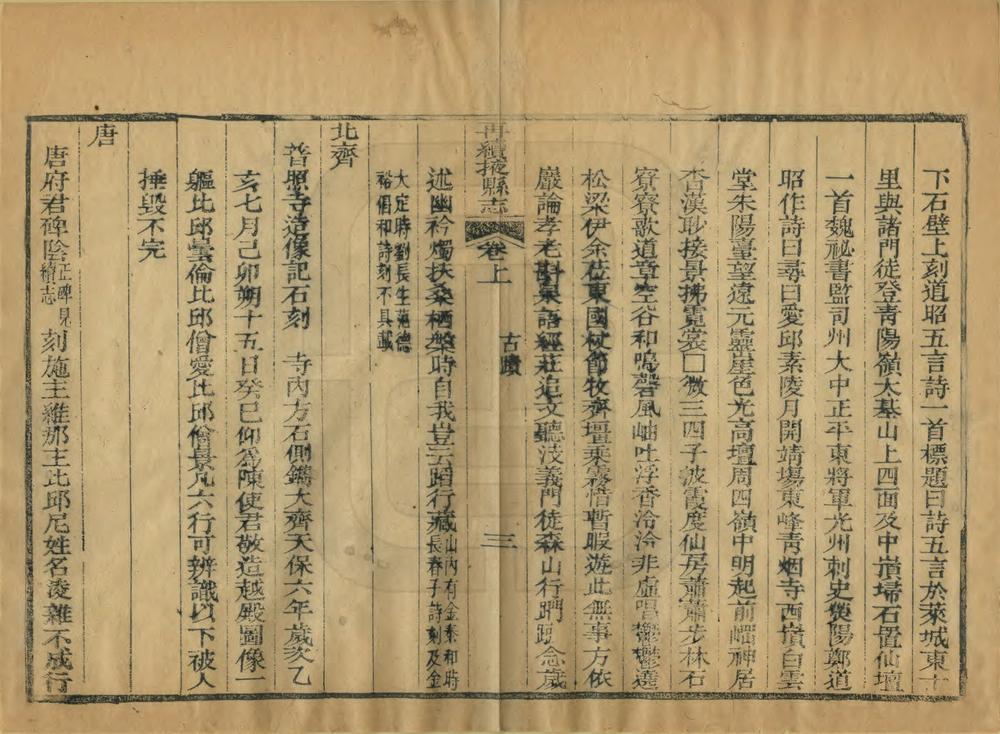 下石壁上刻道昭五言詩一首標題曰詩五言於萊城東十
里與諸門徒登青陽嶺太基山上四面及中嵿埽石置仙壇
一首魏祕書監司州大中正平東將軍光州刺史熒陽鄭道
昭作詩曰尋日愛邱素陵月開靖場東峰青烟寺西嶺白雲
堂朱陽臺望遠元靈崖色光高壇周四嶺中明起前岫神居
杳漢眇接景拂霓裳□微三四子波霞度仙房蕭蕭步林石
寮寮歌道章空谷和鳴磬風岫吐浮香泠泠非虛唱鬱鬱遶
松梁伊余莅東國杖節牧齊壇乘霧惜暫暇遊此無事方依
巖論孝老斟泉語經莊追文聽浅義門徒森山行踌踌念歲
述幽衿燭扶桑栖槃時自我豈云蹈行藏山內有金泰和時
長春子詩刻及金
大定時劉長生范德
裕倡和詩刻不具載
再續掖縣志 卷上 古蹟 三
北齊
普照寺造像記石刻 寺內方石側鐫大齊天保六年歲亥乙
亥七月己卯朔十五日癸巳仰為陳使君敬造越殿圖像一
軀比邱曇倫比邱僧愛比邱僧景凡六行可辨識以下被人
捶毀不完
唐
唐府君碑陰正碑見
續志
刻施主維那主比邱尼姓名淩雜不成行